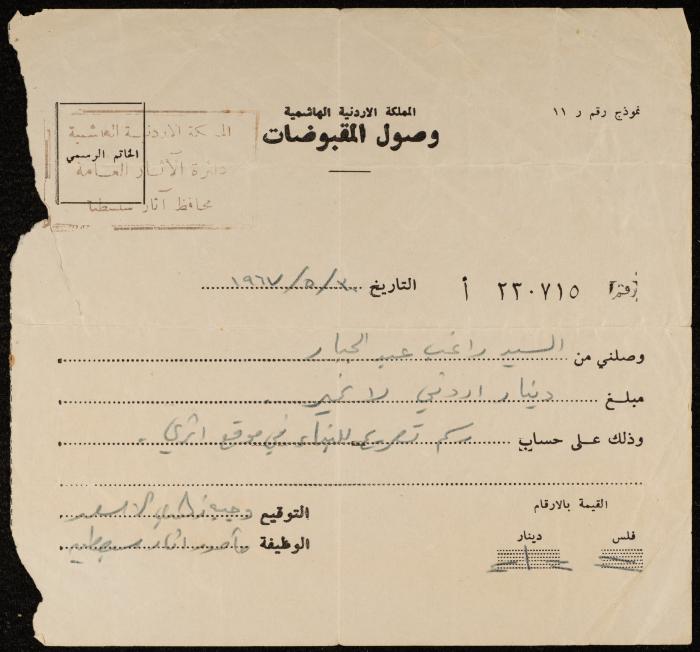 نموذج رقم ر ١١
المملكة الاردنية الهاشمية
وصول المقبوضات
المملكة الاردنية الهاشمية
دائرة الآثار العامة
محافظ آثار سبسطيا
الخاتم الرسمي
رقم ٢٣٠٧١٥ أ
التاريخ ٣٠/٥/١٩٦٧
وصلني من السيد راغب عبد الجبار
مبلغ دينار اردني لا غير.
وذلك على حساب رسم تصريح للبناء في موقع اثري.
القيمة بالارقام
فلس دينار
— /١
التوقيع
الوظيفة مأمور اثار سبسطيه